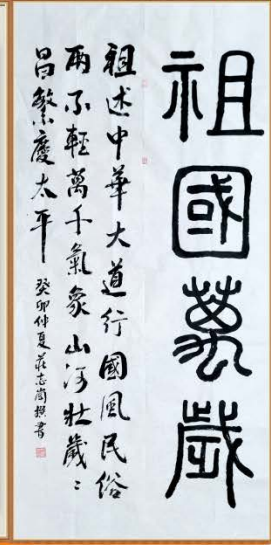 祖國萬歲
祖述中華大道行國風民俗
兩不輕萬千氣象山河壯歲々
昌繁慶太平
癸卯仲夏莊志撰書